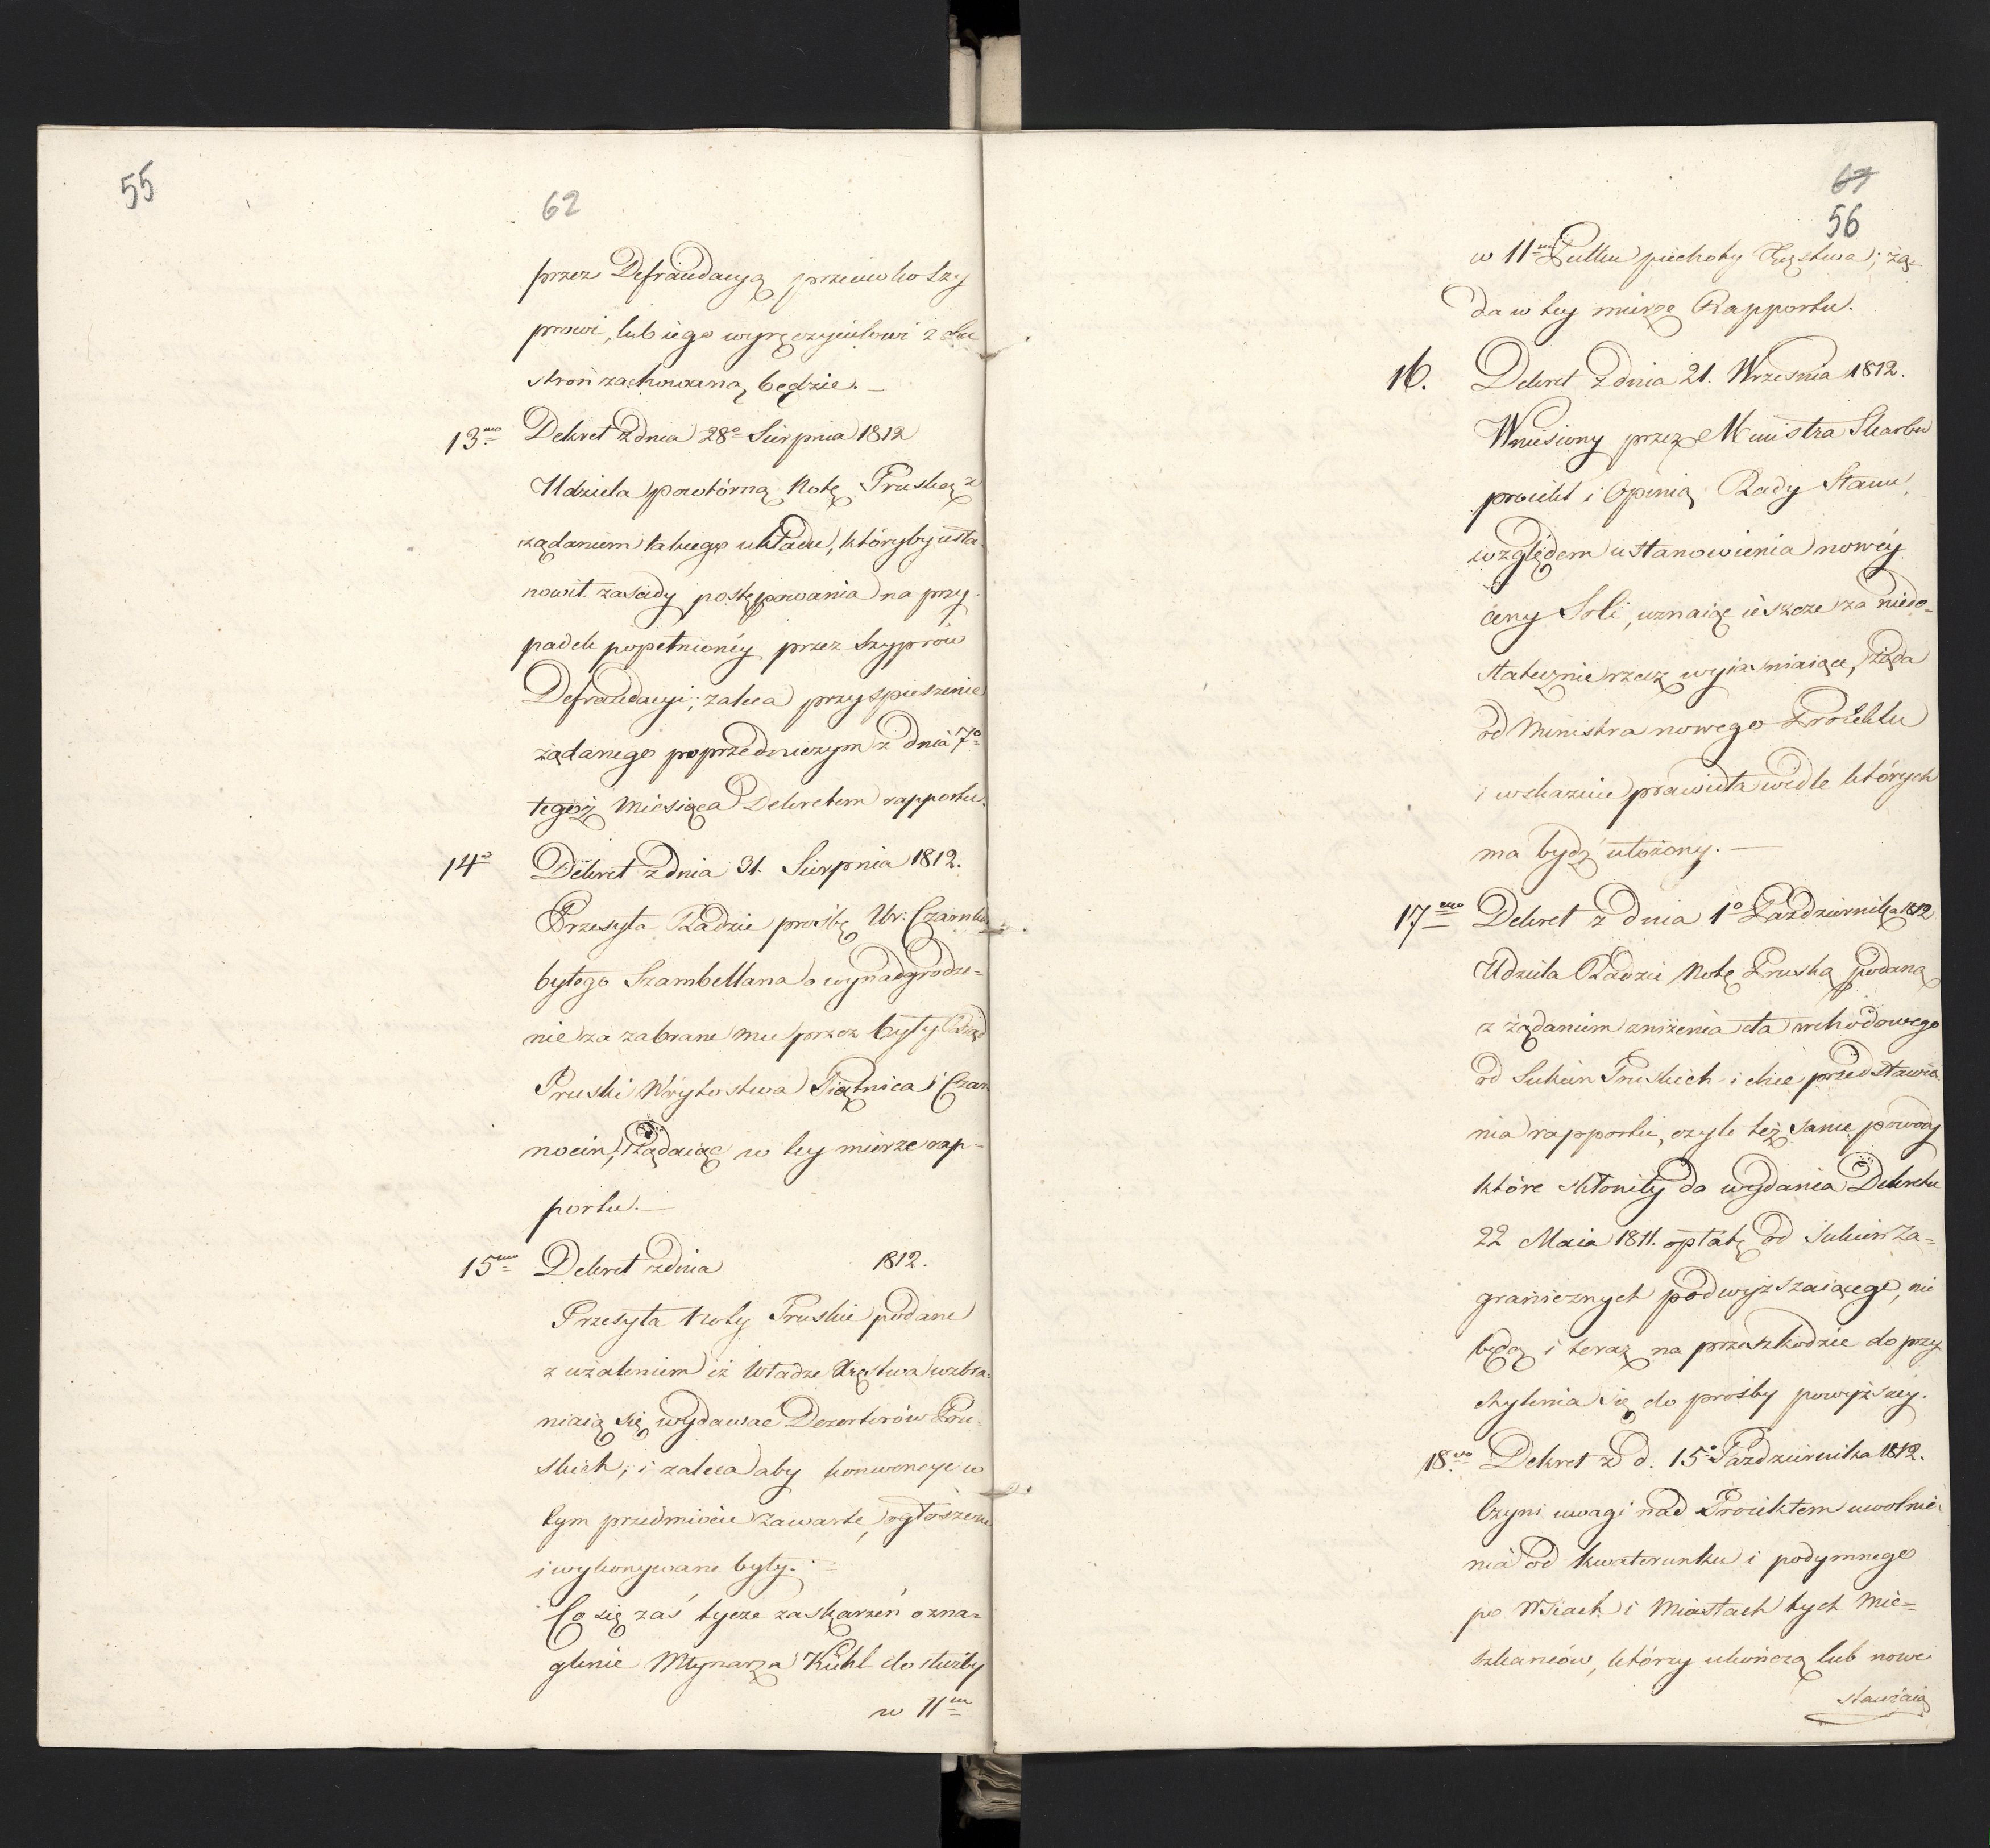 55
62
przez Defraudacyą przeciwko Szy
prowi, lub iego wyręczycielowi z obu
stron zachowaną będzie. —
13mo Dekret z dnia 28o Sierpnia 1812
Udziela powtórną Notę Pruską z
żądaniem takiego układu, któryby usta
nowił zasady postępowania na przy
padek popełnionéy przez Szyprów
Defraudacyi; zaleca przyspieszenie
żądanego poprzedniczym z dnia 7o
tegoż Miesiąca Dekretem rapportu.
14o Dekret z dnia 31. Sierpnia 1812.
Przesyła Radzie proźbę Ur:
byłego Szambellana o wynadgrodze-
nie za zabrane mu przez były Rząd
Pruski Wóytostwa Piątnica i Czar
nocin, żądaiąc w tey mierze rap-
portu. —
15mo Dekret z dnia 1812.
Przesyła Noty Pruskie podane
z użaleniem iż Władze Xięstwa wzbra-
niaią się wydawać Dezerterów Pru-
skich; i zaleca aby konwencye w
tym przedmiocie zawarte, ogłoszone
i wykonywane były. —
Co się zaś tycze zaskarzeń o zna-
glenie Młynarza Kühl do służby
w 11m
67
56
w 11m Pułku piechoty Xięstwa; żą-
da w tey mierze Rapportu.
16. Dekret z dnia 21. Września 1812.
Wniesiony przez Ministra Skarbu
proiekt i Opinią Rady Stanu,
względem ustanowienia nowéy
ceny Soli, uznaiąc ieszcze za niedo-
statecznie rzecz wyiaśniaiące, żąda
od Ministra nowego Proiektu
i wskazuie prawidła wedle których
ma bydź ułożony. —
17mo Dekret z dnia 1o Października 1812
Udziela Radzie Notę Pruską podaną
z żądaniem zniżenia cła wchodowego
od Sukien Pruskich i chce przedstawie
nia rapportu, czyli też same powody
które skłoniły do wydania Dekretu
22 Maia 1811. opłatę od Sukien Za-
granicznych podwyższaiącego, nie
będą i teraz na przeszkodzie do przy
chylenia się do prośby powyższey.
18vo Dekret z d. 15o Października 1812.
Czyni uwagi nad Proiektem uwolnie
nia od kwaterunku i podymnego
po Wsiach i Miastach tych Mie-
szkańców, którzy ukończą lub nowe
stawiaią